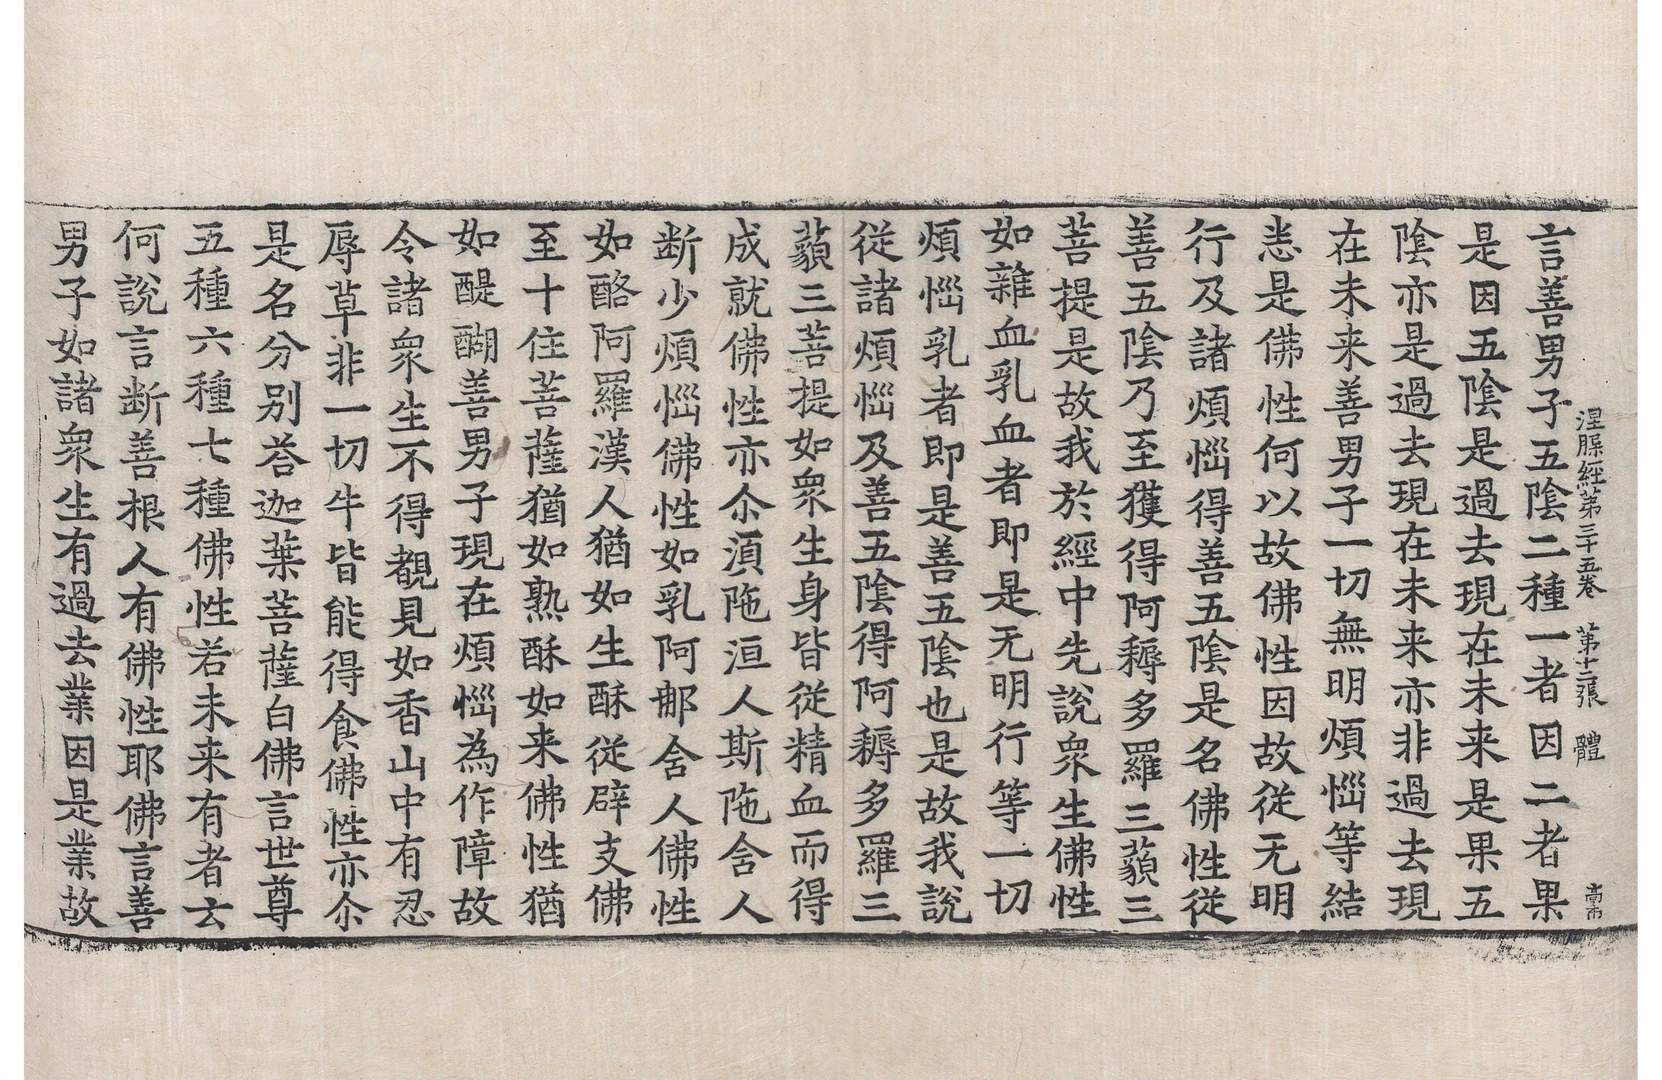 涅槃經第三十五卷　第十二張　體
言善男子五陰二種一者因二者果
是因五陰是過去現在未来是果五
陰亦是過去現在未来亦非過去現
在未来善男子一切無明煩惱等結
悉是佛性何以故佛性因故從无明
行及諸煩惱得善五陰是名佛性從
善五陰乃至獲得阿耨多羅三藐三
菩提是故我於經中先說衆生佛性
如雜血乳血者即是无明行等一切
煩惱乳者即是善五陰也是故我說
從諸煩惱及善五陰得阿耨多羅三
藐三菩提如衆生身皆從精血而得
成就佛性亦尒須陁洹人斯陁含人
断少煩惱佛性如乳阿那含人佛性
如酪阿羅漢人猶如生酥從辟支佛
至十住菩薩猶如熟酥如来佛性猶
如醍醐善男子現在煩惱為作障故
令諸衆生不得覩見如香山中有忍
辱草非一切牛皆能得食佛性亦尒
是名分别荅迦葉菩薩白佛言世尊
五種六種七種佛性若未来有者云
何說言断善根人有佛性耶佛言善
男子如諸衆生有過去業因是業故